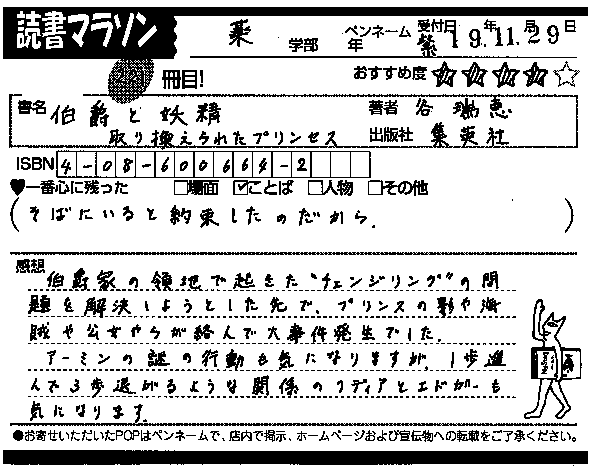 読書マラソン
薬 学部 年 ペンネーム 紫 受付日 19年11月29日
冊目! おすすめ度 ★★★★☆
書名 伯爵と妖精 著者 谷 瑞恵
取り換えられたプリンセス 出版社 集英社
ISBN 4-08-600664-2
♥一番心に残った □場面 ☑ことば □人物 □その他
(そばにいると約束したのだから。)
感想
伯爵家の領地で起きた“チェンジリング”の問
題を解決しようとした先で、プリンスの影や海
賊や公女やらが絡んで大事件発生でした。
アーミンの謎の行動も気になりますが、1歩進
んで3歩退がるような関係のリディアとエドガーも
気になります。
●お寄せいただいたPOPはペンネームで、店内で掲示、ホームページおよび宣伝物への転載をご了承ください。